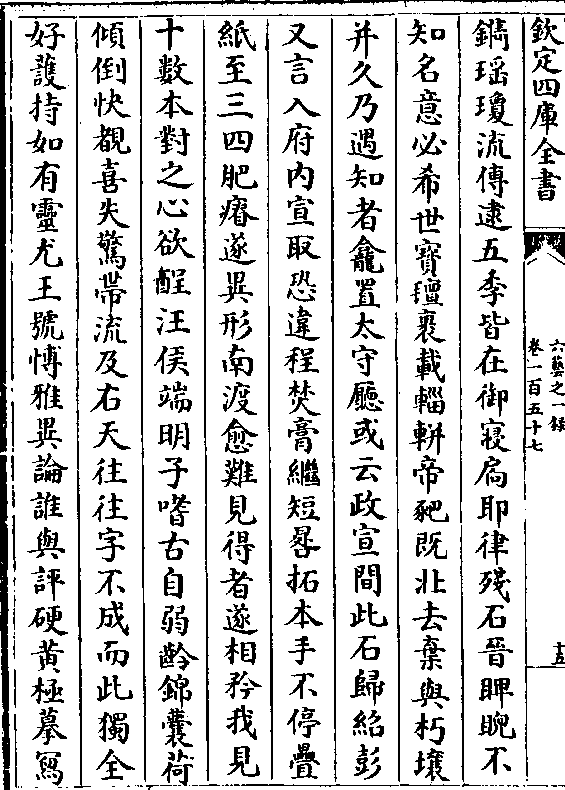 欽定四庫全書
六藝之一錄
卷一百五十七
十五
鐫瑶瓊流傳逮五季皆在御寢扃耶律殘石晉睥睨不
知名意必希世寳氊裹載輜軿帝羓既北去棄與朽壤
并久乃遇知者龕置太守廳或云政宣間此石歸紹彭
又言入府内宣取恐違程焚膏繼短晷拓本手不停疊
紙至三四肥瘠遂異形南渡愈難見得者遂相矜我見
十數本對之心欲酲汪侯端明子嗜古自弱齡錦囊荷
傾倒快覩喜失驚帶流及右天往往字不成而此獨全
好護持如有靈尤王號博雅異論誰與評硬黄極摹寫